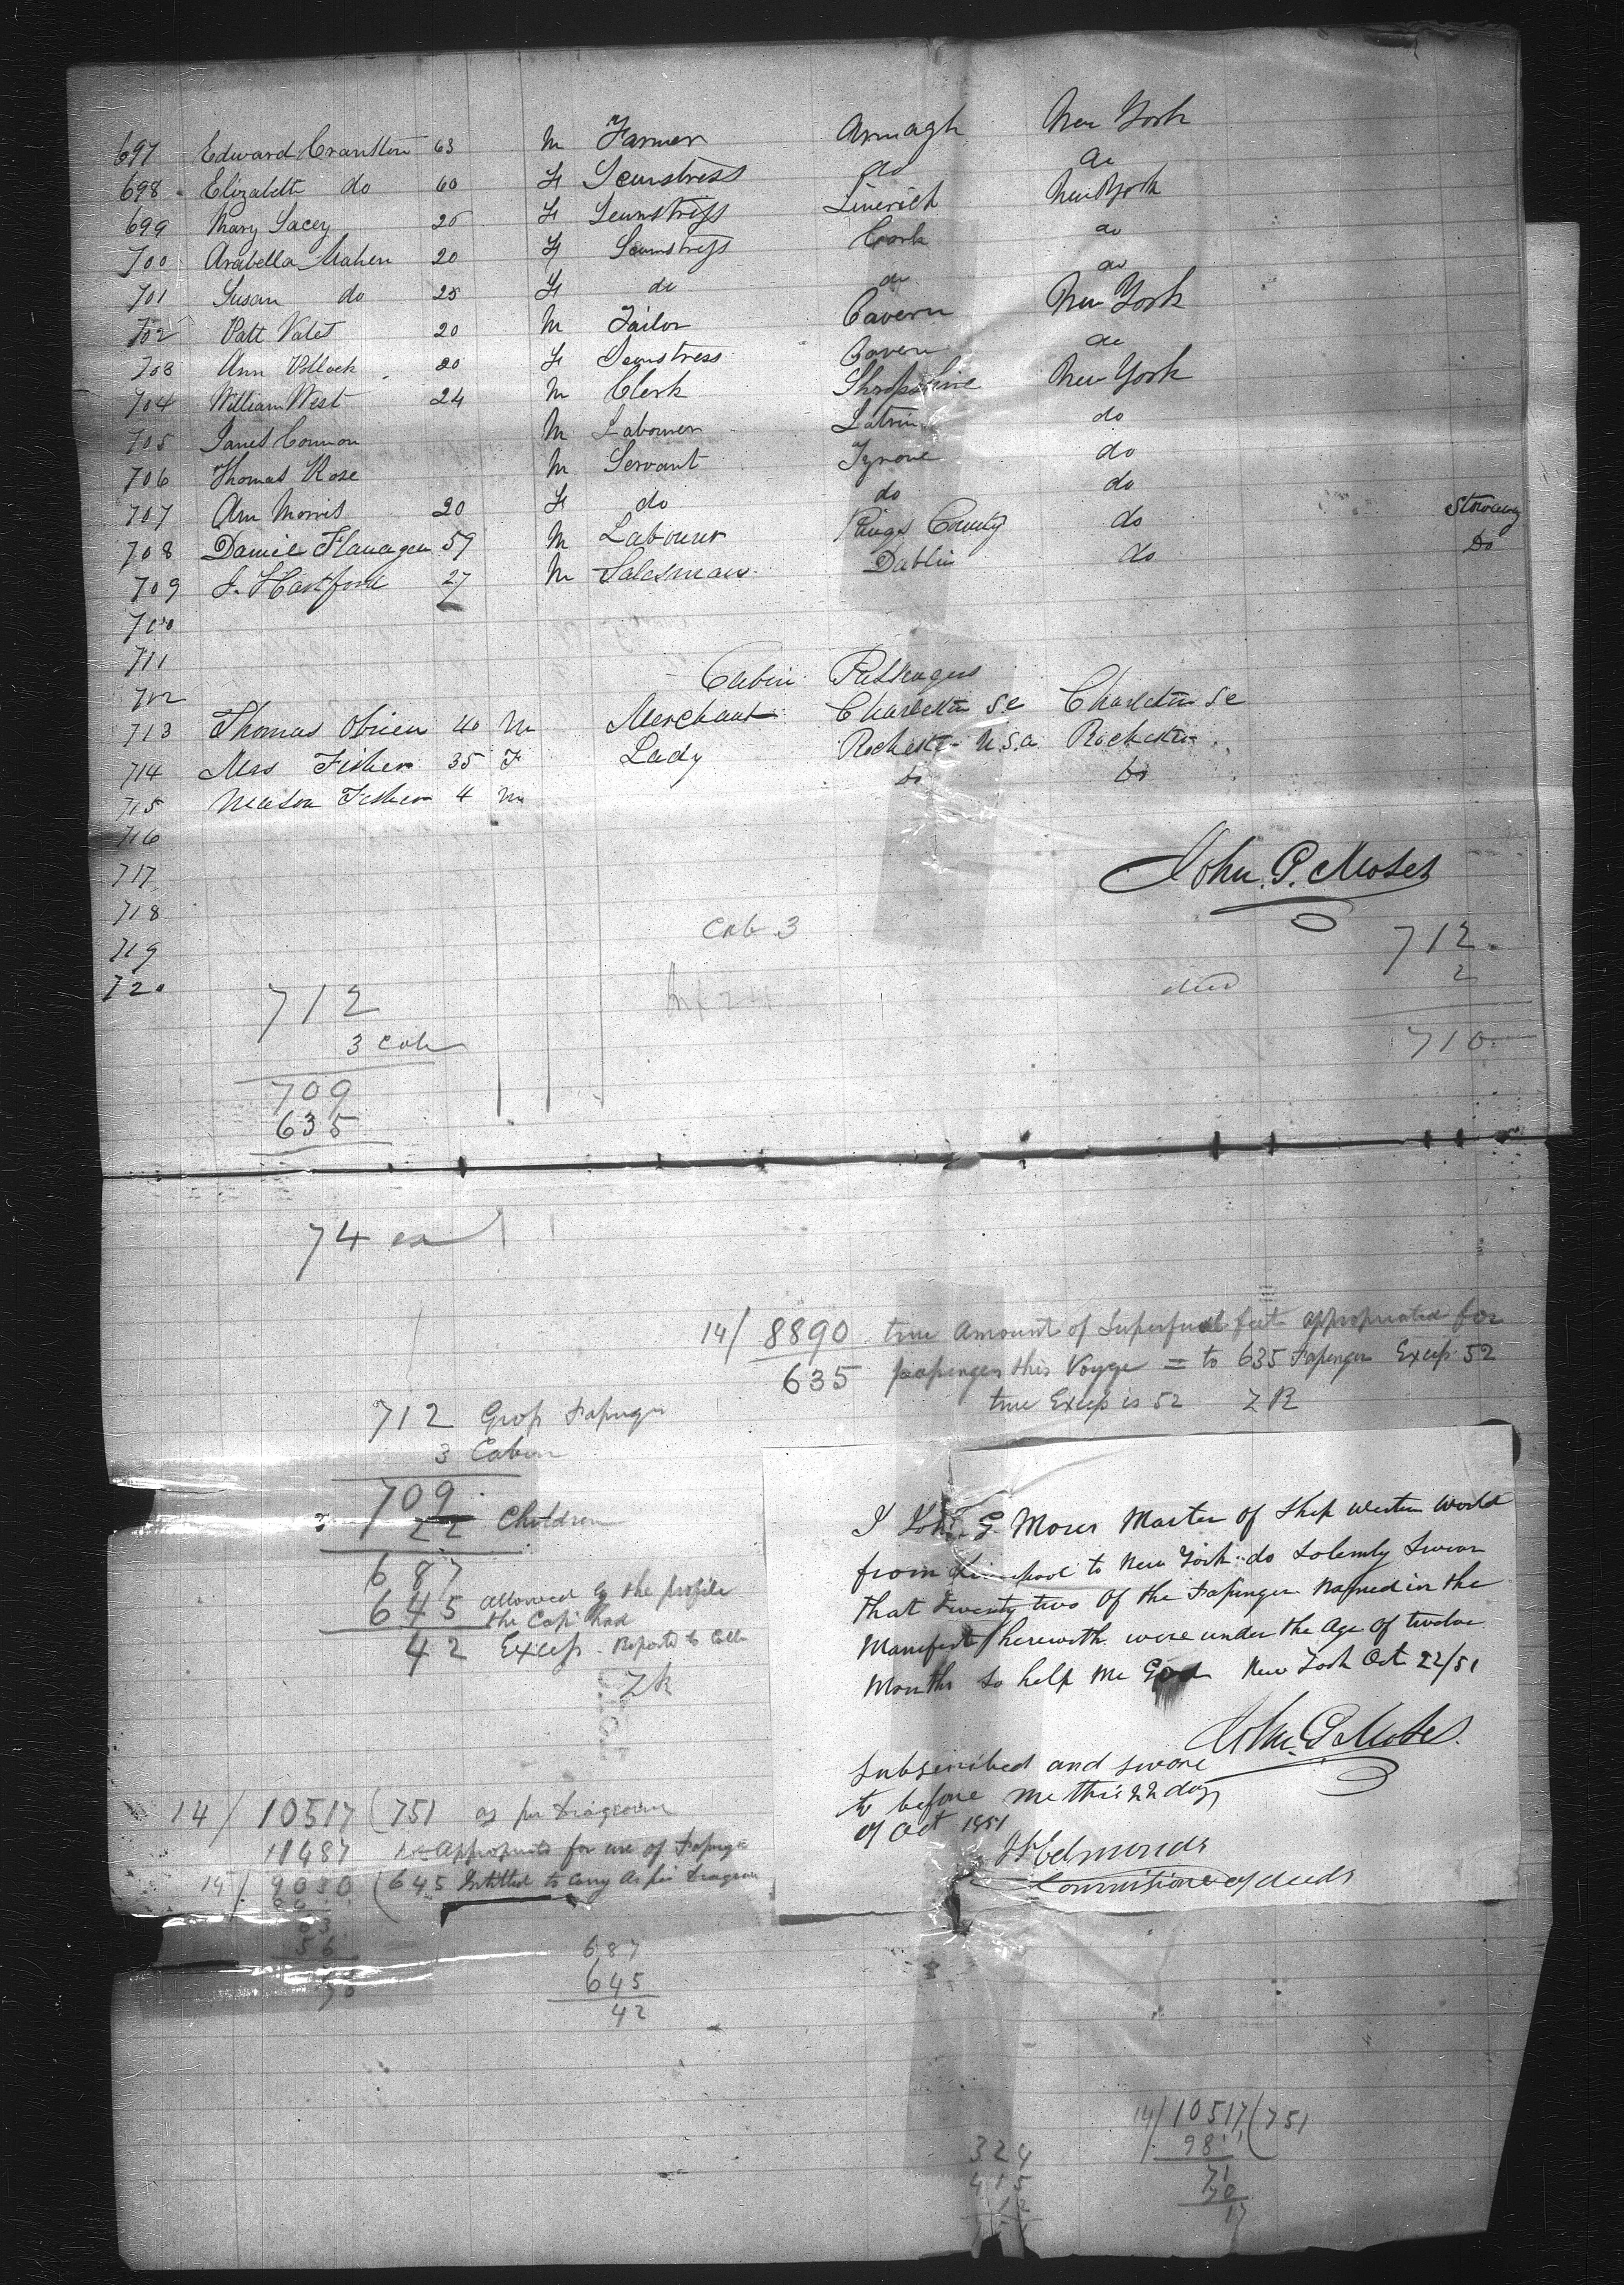 697 Edward Cranston 63 M Farmer Armagh New York
698 Elizabeth do 60 F Seamstress do do
699 Mary Lacey 25 F Seamstress Limerick New York
700 Arabella Mahen 20 F Seamstress Cork do
701 Susan do 25 F do do do
702 Patt 20 M Tailor Cavern New York
703 Ann Pollock 20 F Seamstress Cavern do
704 William West 24 M Clerk Shropshire New York
705 Connon M Labourer do
706 Thomas Rose M Servant Tyrone do
707 Ann Morris 20 F do do do
708 Daniel Flanagan 59 M Labourer Kings County do Stowaway
709 J. Hartford 27 M Salesman Dublin do Do
710
711
712
Cabin Passengers
713 Thomas Obrien 40 M Merchant Charleston S.C Charleston S.C
714 Mrs Fisher 35 F Lady Rochester U.S.a Rochester
715 Fisher 4 M Do Do
716
John. G. Moses
717
718
719
720
Cab 3
712
3 Cab
709
635
74 ex
712
died 2
710
14/ 8890 true amount of Superficial feet appropriated for
635 passengers this Voyge = to 635 Passenger Excess 52
true Excess is 52 ZR
712 Gross Passenger
3 Cabin
709
22 Children
687
645 allowed by the profile
the Capt had
42 Excess Reported to Coll
ZR
I John G. Moses Master of Ship Western World
from Liverpool to New York do Solemly Swear
that twenty two of the Passenger Named in the
Manifest herewith were under the Age of twelve
Months So help me God New York Oct 22/51
John. G Moses.
Subscribed and swore
to before me this 22 day
of Oct 1851
Edmonds
Commissioner of deeds
14/ 10517 (751 as per Diagram
11487 Appropriated for use of Passenge
14/ 9030 (645 Intitled to Carry As per Diagram
63
56
70
687
645
42
14/10517(751
98
71
70
17
324
415